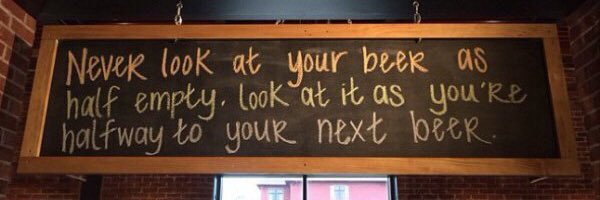 Never look at your beer as
half empty. look at it as you're
halfway to your next beer.